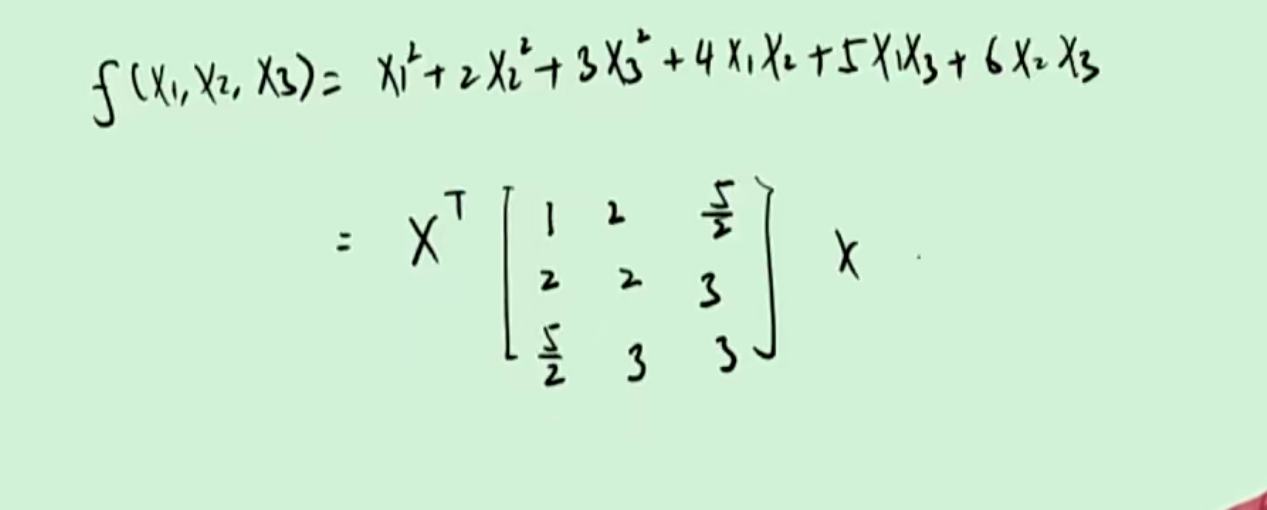 f(x₁, x₂, x₃) = x₁² + 2x₂² + 3x₃² + 4x₁x₂ + 5x₁x₃ + 6x₂x₃
= x^T [ 1 2 5/2
2 2 3
5/2 3 3 ] x